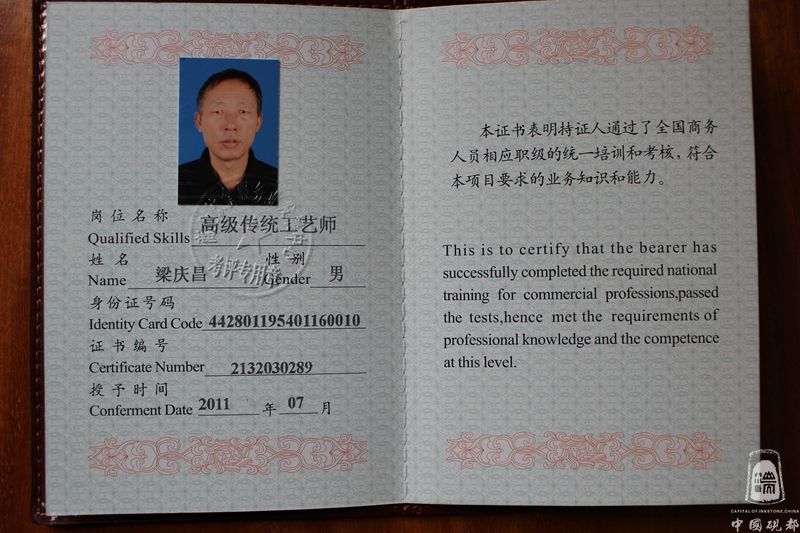 岗位名称
高级传统工艺师
Qualified Skills
姓名 性别
Name 梁庆昌 Gender 男
考评专用章
身份证号码
Identity Card Code 442801195401160010
证书编号
Certificate Number 2132030289
授予时间
Conferment Date 2011 年 07 月
本证书表明持证人通过了全国商务
人员相应职级的统一培训和考核，符合
本项目要求的业务知识和能力。
This is to certify that the bearer has
successfully completed the required national
training for commercial professions,passed
the tests,hence met the requirements of
professional knowledge and the competence
at this level.
CAPITAL OF INKSTONE,CHINA
中國硯都